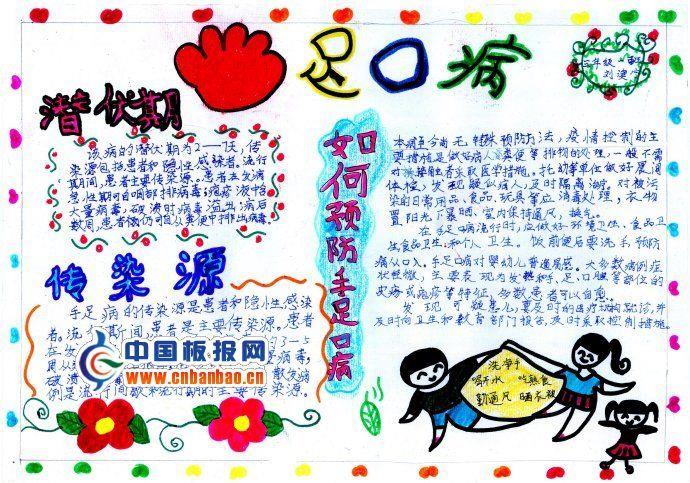 足口病
三年级一班
潜伏期
该病的潜伏期为2—7天,传
染源包括患者和隐性感染者。流行
期间,患者主要传染源。患者在发病
急性期可自咽部排病毒;疱疹液中含
大量病毒,破溃时病毒溢出;病后
数周,患者仍可自从粪便中排出病毒。
传染源
手足口病的传染源是患者和隐性感染
者。流行期间,患者是主要传染源。患者
在发
3—5
周从
病毒,
散发病
例是流行间歇和流行期的主要传染源。
如何预防手足口病
本病至今尚无特殊预防方法,疫情控制的主
要措施是做好病人粪便等排物的处理,一般不需
对接触者采取医学措施。托幼等单位做好晨间
体检,发现疑似病人,及时隔离治疗。对被污
染的日常用品、食品、玩具等应消毒处理,衣物
置阳光下暴晒,室内保持通风,换气。
在手足口病流行时,应做好环境卫生、食品卫
生和个人卫生。饭前便后要洗手,预防
病从口入。手足口病对婴幼儿普遍易感。大多数病例症
状轻微,主要表现为发热和手、足、口腔等部位的
皮疹或疱疹等特征,多数患者可以自愈。
发现可疑患儿,要及时到医疗机构就诊,并
及时向卫生和教育部门报告,及时采取控制措施。
洗净手
喝开水 吃熟食
勤通风 晒衣被
中国板报网
www.cnbanbao.cn